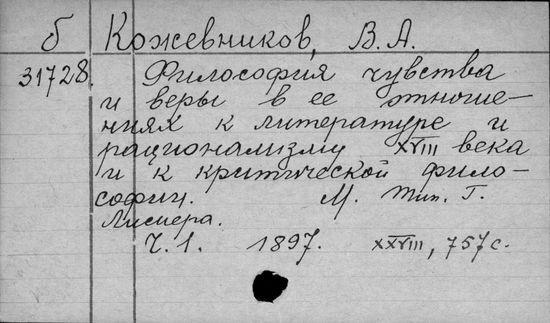 б Кожевников, В. А.
31728. Философия чувства
и веры в ее отноше-
ниях к литературе и
рационализму XVIII века
и к критической фило-
софии. М. Тип. Г.
Лиснера.
Ч. 1. 1897. XXVIII, 757 с.